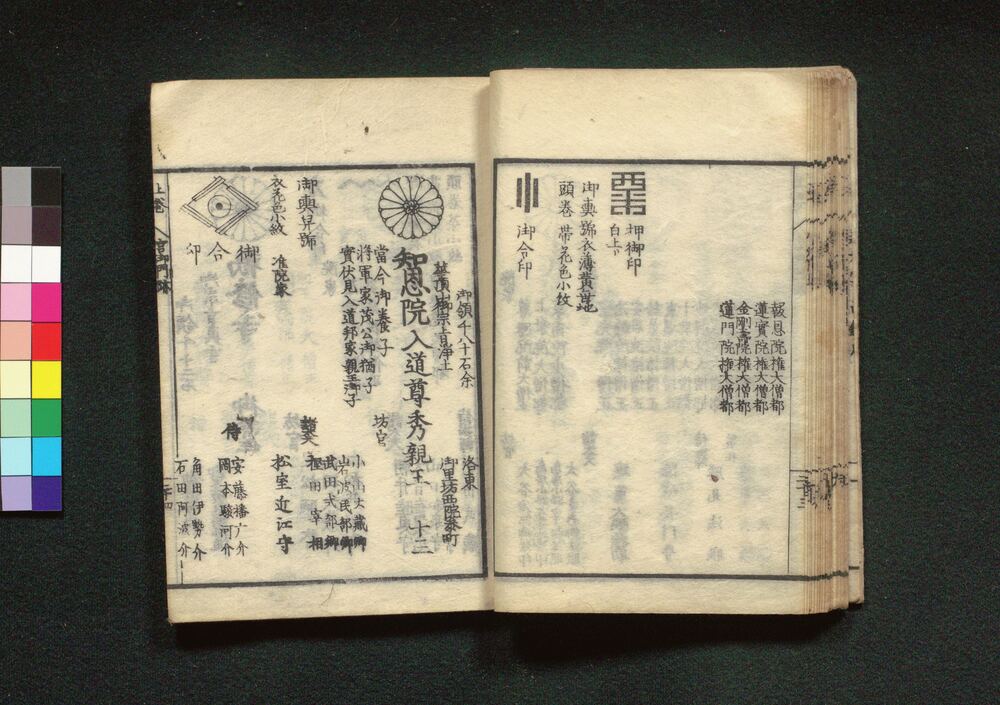 報恩院権大僧都
蓮實院権大僧都
金剛壽院権大僧都
蓮門院権大僧都
押御印
白上下
御輿舁衣薄黄茂地
頭巻 帯花色小紋
御合印
御領千八十石余
洛東
御里坊西院参町
華頂山御宗旨浄土
智恩院入道尊秀親王 十三
當今御養子
将軍家茂公御猶子
實伏見入道邦家親王御子
坊官
小山大蔵卿
岩波民部卿
武田式部卿
樫田宰相
御輿舁
衣花色小紋
准院家
諸大夫
松室近江守
御合印
侍
安藤播广介
岡本駿河介
角田伊勢介
石田阿波介
上巻
宮御門跡
二十四